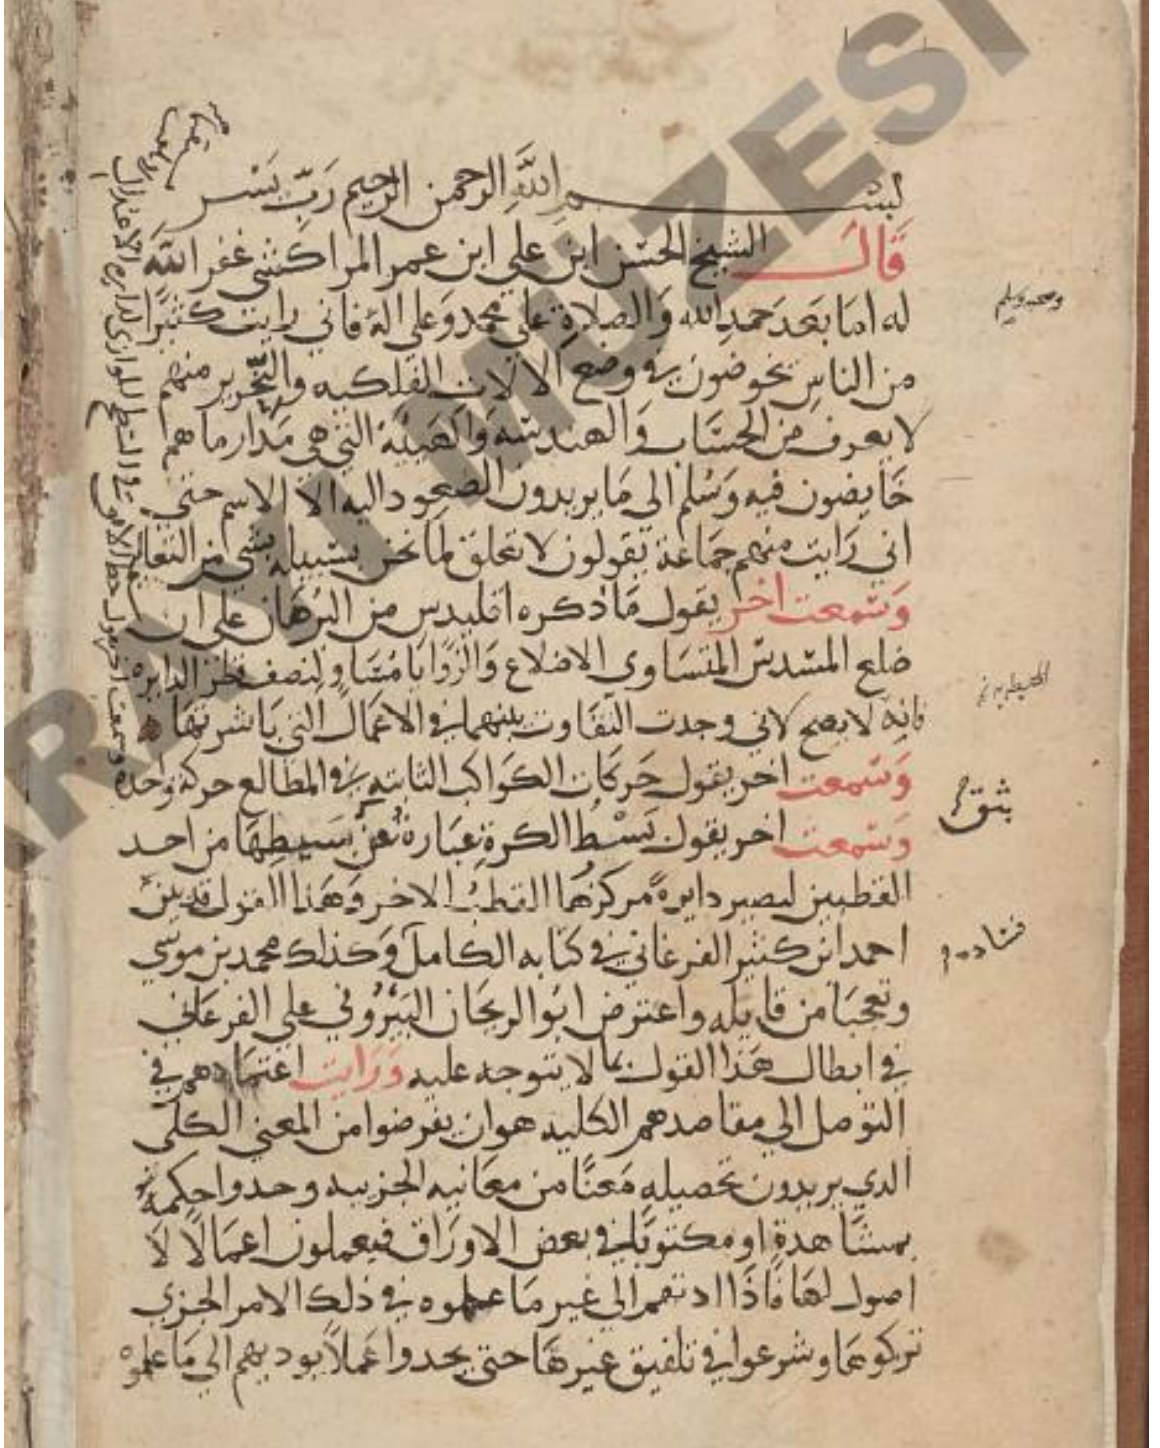 بسم الله الرحمن الرحيم رب يسر
قال الشيخ الحسن ابن علي ابن عمر المراكشي غفر الله
له اما بعد حمد الله والصلاة على محمد وعلى اله فاني رايت كثيرا
من الناس يخوضون في وضع الالات الفلكيه والتحرير منهم
لا يعرف من الحساب والهندسه والهيئة التي هي مدار ما هم
خايضون فيه وسلم الى ما يريدون الصعود اليه الا الاسم حتى
اني رايت منهم جماعة يقولون لا تعلق لما نحن بسبيله بشي من التعاليم
وسمعت اخر يقول ما ذكره اقليدس من البرهان على ان
ضلع المسدس المتساوي الاضلاع والزوايا مساو لنصف قطر الدايرة
فانه لا يصح لاني وجدت التفاوت بينهما في الاعمال التي باشرتها
وسمعت اخر يقول حركات الكواكب الثابته في المطالع حركة واحدة
وسمعت اخر يقول بسط الكرة عبارة عن بسيطها من احد
القطبين ليصير دايرة مركزها القطب الاخر وهذا القول قد بين
احمد ابن كثير الفرغاني في كتابه الكامل وكذلك محمد بن موسى
وتعجبا من قايله واعترض ابو الريحان البيروني على الفرغاني
في ابطال هذا القول بما لا يتوجه عليه ورايت اعتمادهم في
التوصل الى مقاصدهم الكليه هو ان يفرضوا من المعنى الكلي
الذي يريدون تحصيله معنا من معانيه الجزييه وحدوا حكمه
بمشاهدة او مكتوبا في بعض الاوراق فيعملون اعمالا لا
اصول لها فاذا ادتهم الى غير ما علموه في ذلك الامر الجزي
تركوها وشرعوا في تلفيق غيرها حتى يجدوا عملا يوديهم الى ما علموه
وصحبه وسلم
المحيط به
فساده
SARAYI MÜZESİ